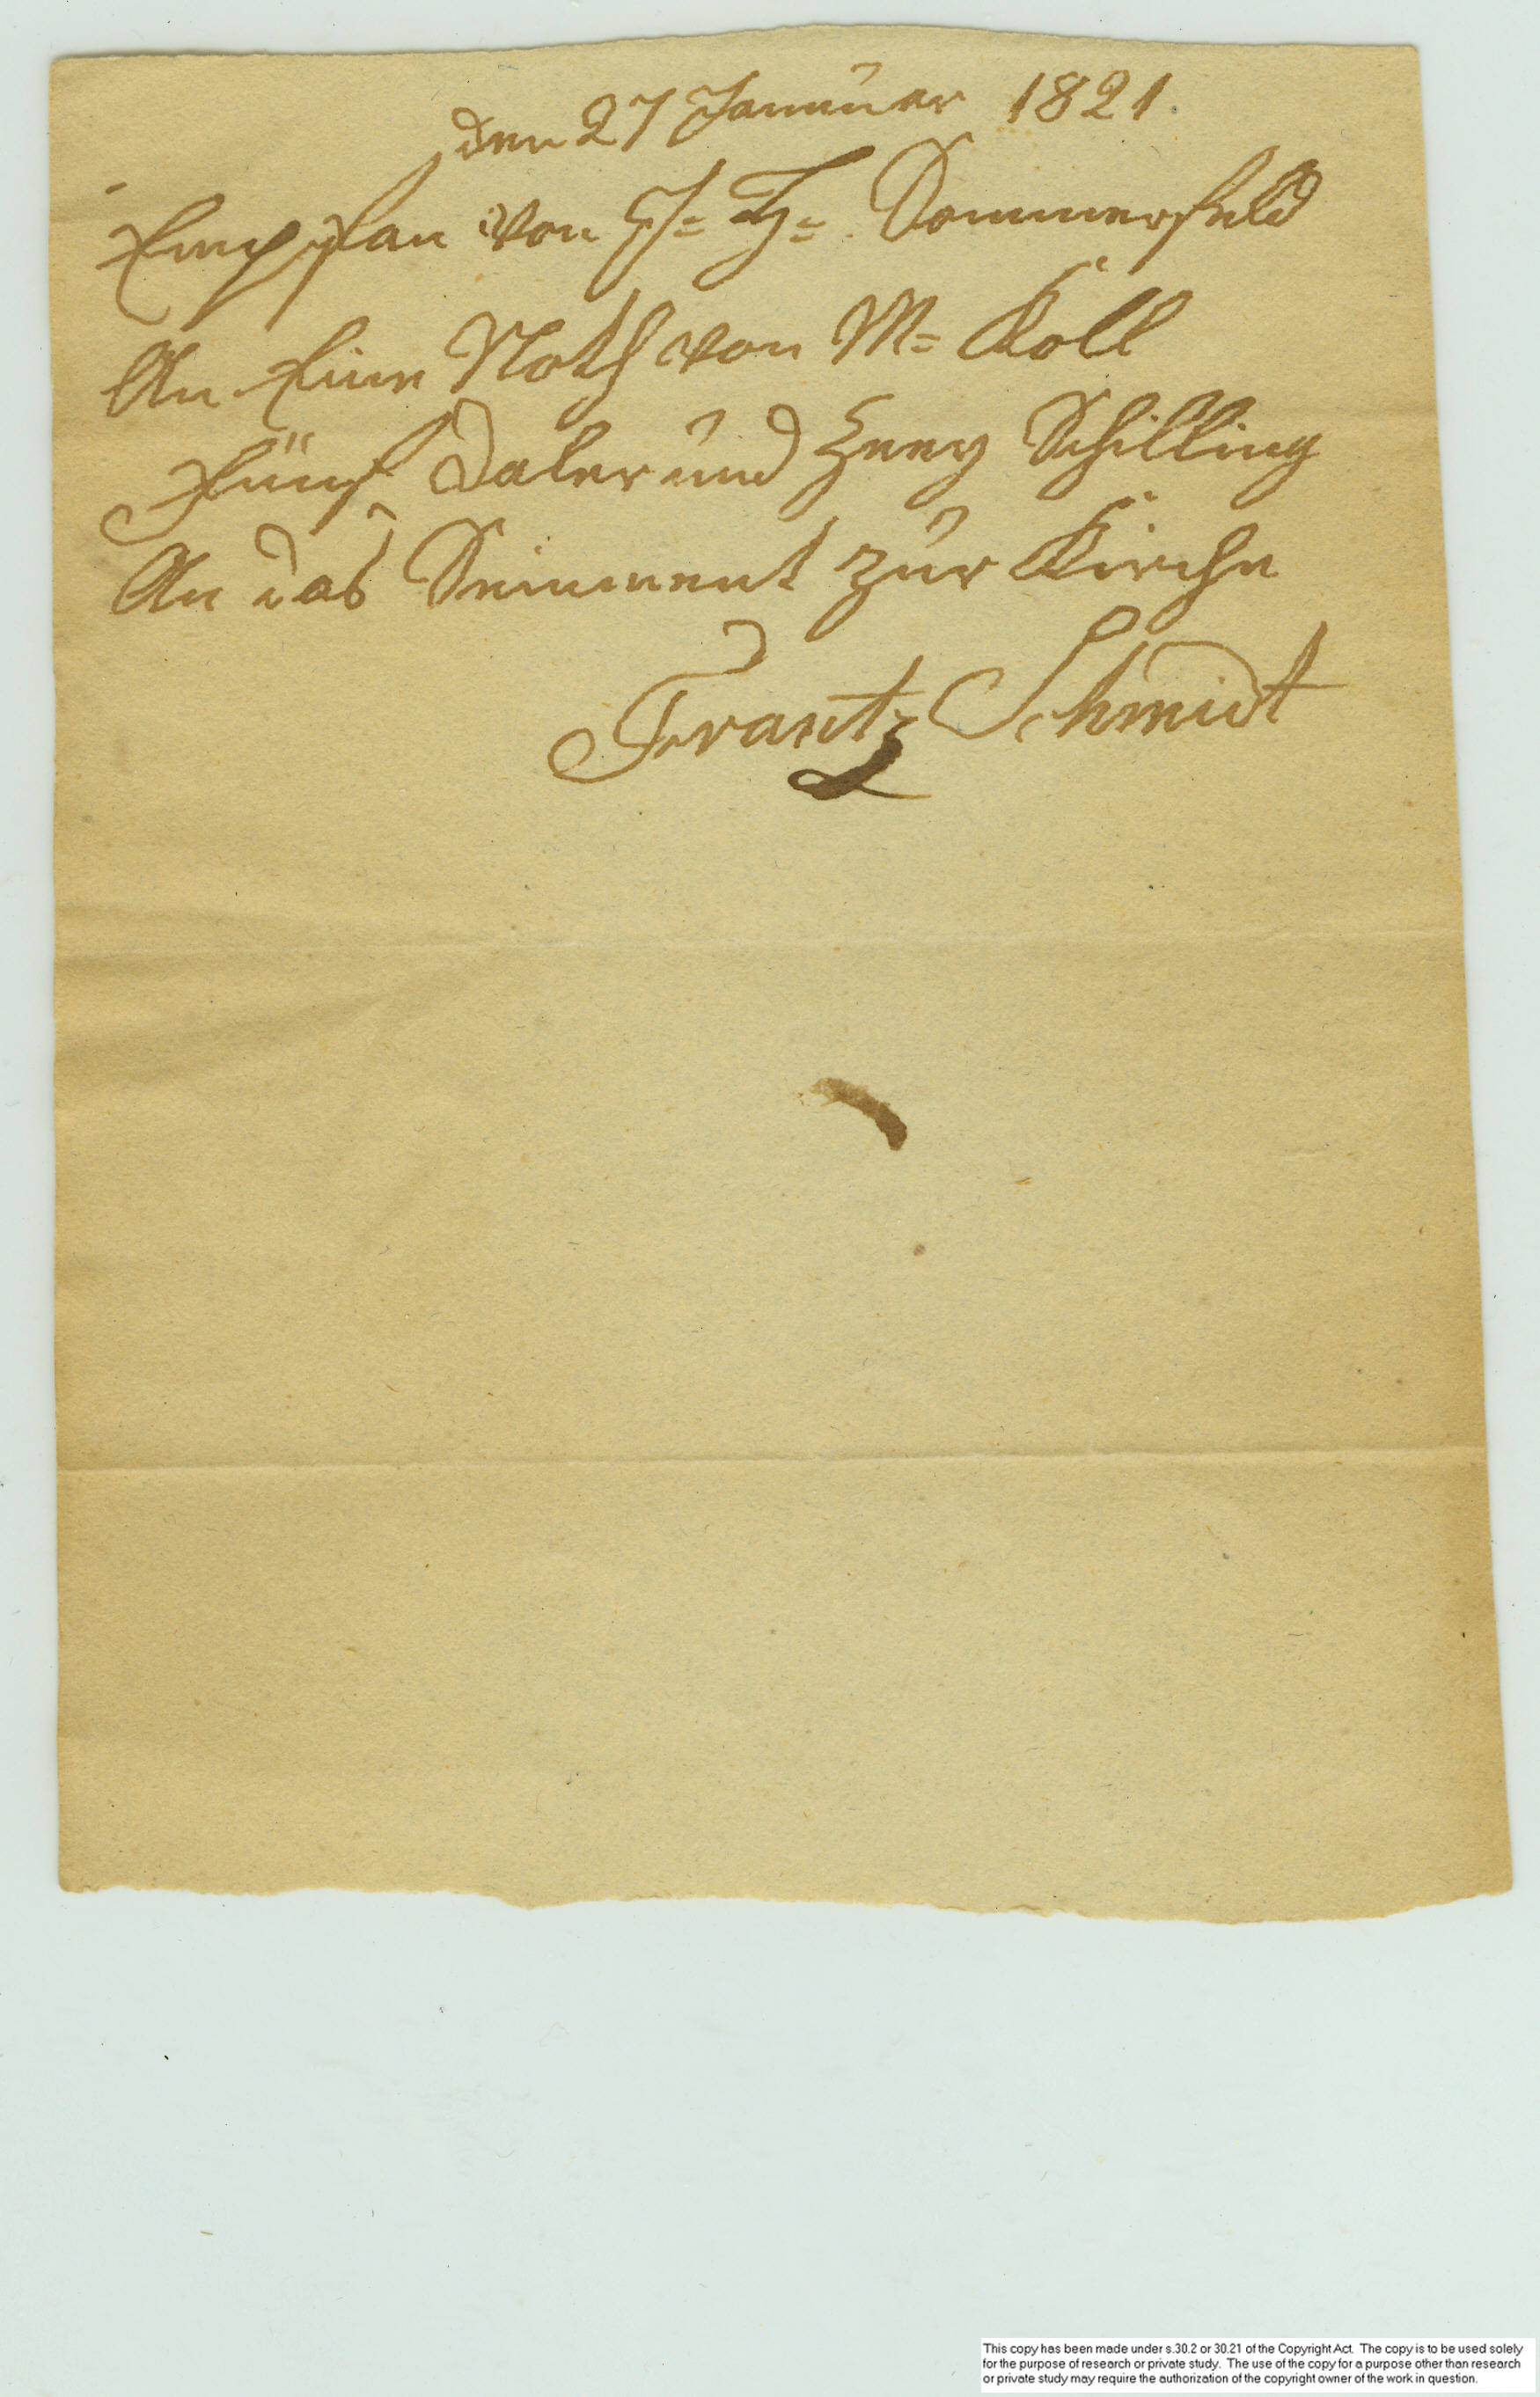 den 27 Januar 1821.
Empfan von J= H= Sommerfeld
An Eine Noth von M= Koll
Fünf Daler und Zeey Schilling
An das Seiment zur Kirche
Frantz Schmidt
This copy has been made under s.30.2 or 30.21 of the Copyright Act. The copy is to be used solely
for the purpose of research or private study. The use of the copy for a purpose other than research
or private study may require the authorization of the copyright owner of the work in question.